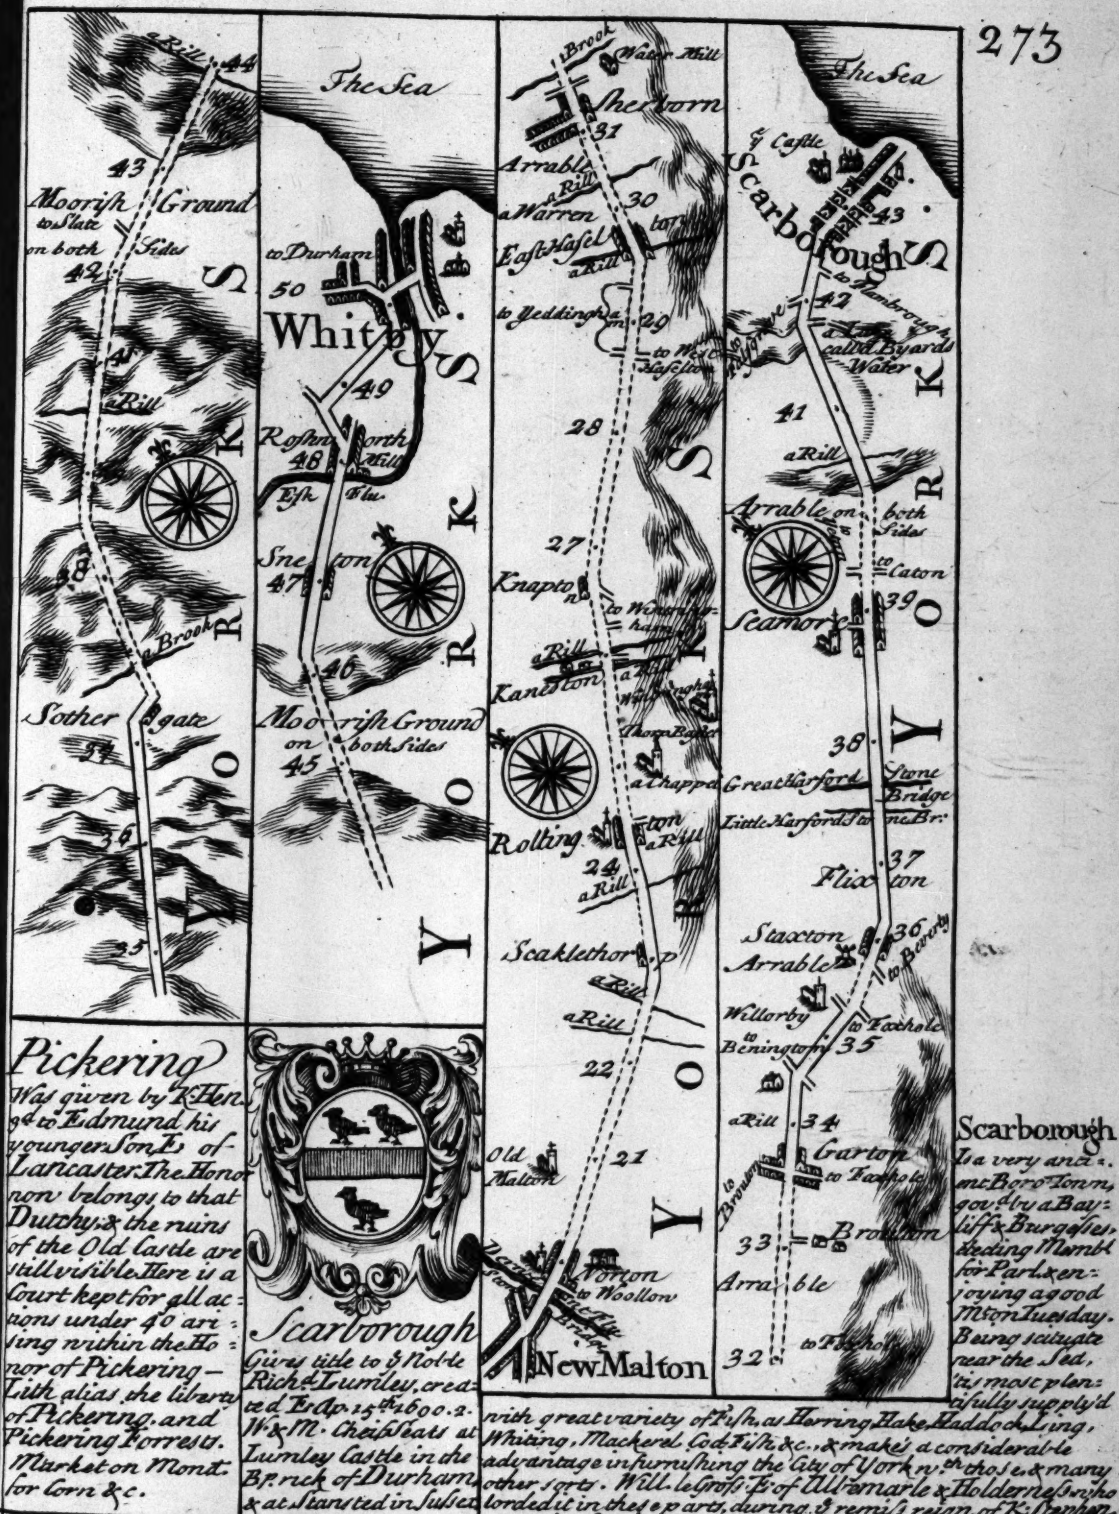 273
a Rill
44
43
Moorish Ground
to Slate
on both Sides
42
41
a Rill
38
a Brook
Sother gate
37
36
35
YORKS
The Sea
to Durham
50
Whitby
49
Roshn orth
48 Mill
Esk Flu.
Sne ton
47
46
Moo rish Ground
on both Sides
45
YORKS
a Brook
Water Mill
Sherborn
31
Arrable
a Rill
30
a Warren
East Hasel ton
a Rill
to Yeddingham
29
to West
Haselton
28
27
Knapton
to Winteringham
a Rill
a Rill
Kaneston
Thorp Basset
a Chappel
Rolting ton
a Rill
24
a Rill
Scaklethor p
a Rill
a Rill
22
Old
Malton
21
Norton
to Woollon
Bridge
New Malton
YORKS
The Sea
ye Castle
Scarborough
43
to Flamborough
42
to Falsgrave
a Lake
call'd Byards
Water
41
a Rill
Arrable on both
Sides
to
Caton
39
Seamore
38
Great Harford Stone
Bridge
Little Harford Stone Br:
37
Flix ton
Staxton
36
Arrable
to Beverly
Willorby
to Foxhole
to
Benington
35
a Rill
34
Garton
to Foxhole
to Broulton
Broulton
33
Arra ble
32
to Foxhole
YORKS
Pickering
Was given by K. Hen.
3d to Edmund his
younger Son E. of
Lancaster. The Honor
now belongs to that
Dutchy, & the ruins
of the Old Castle are
still visible. Here is a
Court kept for all ac=
tions under 40s ari=
sing within the Ho=
nor of Pickering —
Lith alias the liberty
of Pickering, and
Pickering Forrests.
Market on Mond.
for Corn &c.
Scarborough
Gives title to ye Noble
Richd. Lumley, crea-
ted E. Ap. 15th 1690. 2.
W & M. Cheif Seats at
Lumley Castle in the
Bp.rick of Durham,
& at Stansted in Sussex
Scarborough
Is a very anti=
ent Boro' Town,
govd. by a Bay=
liff & Burgesses.
electing Membs.
for Parl. & en=
joying a good
Mt. on Tuesday.
Being scituate
near the Sea,
'tis most plen=
tifully supply'd
with great variety of Fish, as Herring Hake, Haddock, Ling,
Whiting, Mackerel Cod-Fish &c., & makes a considerable
advantage in furnishing the City of York wth those, & many
other sorts. Will. le Gross E. of Albemarle & Holderness, who
lorded it in these parts, during ye remiss reign of K. Stephen